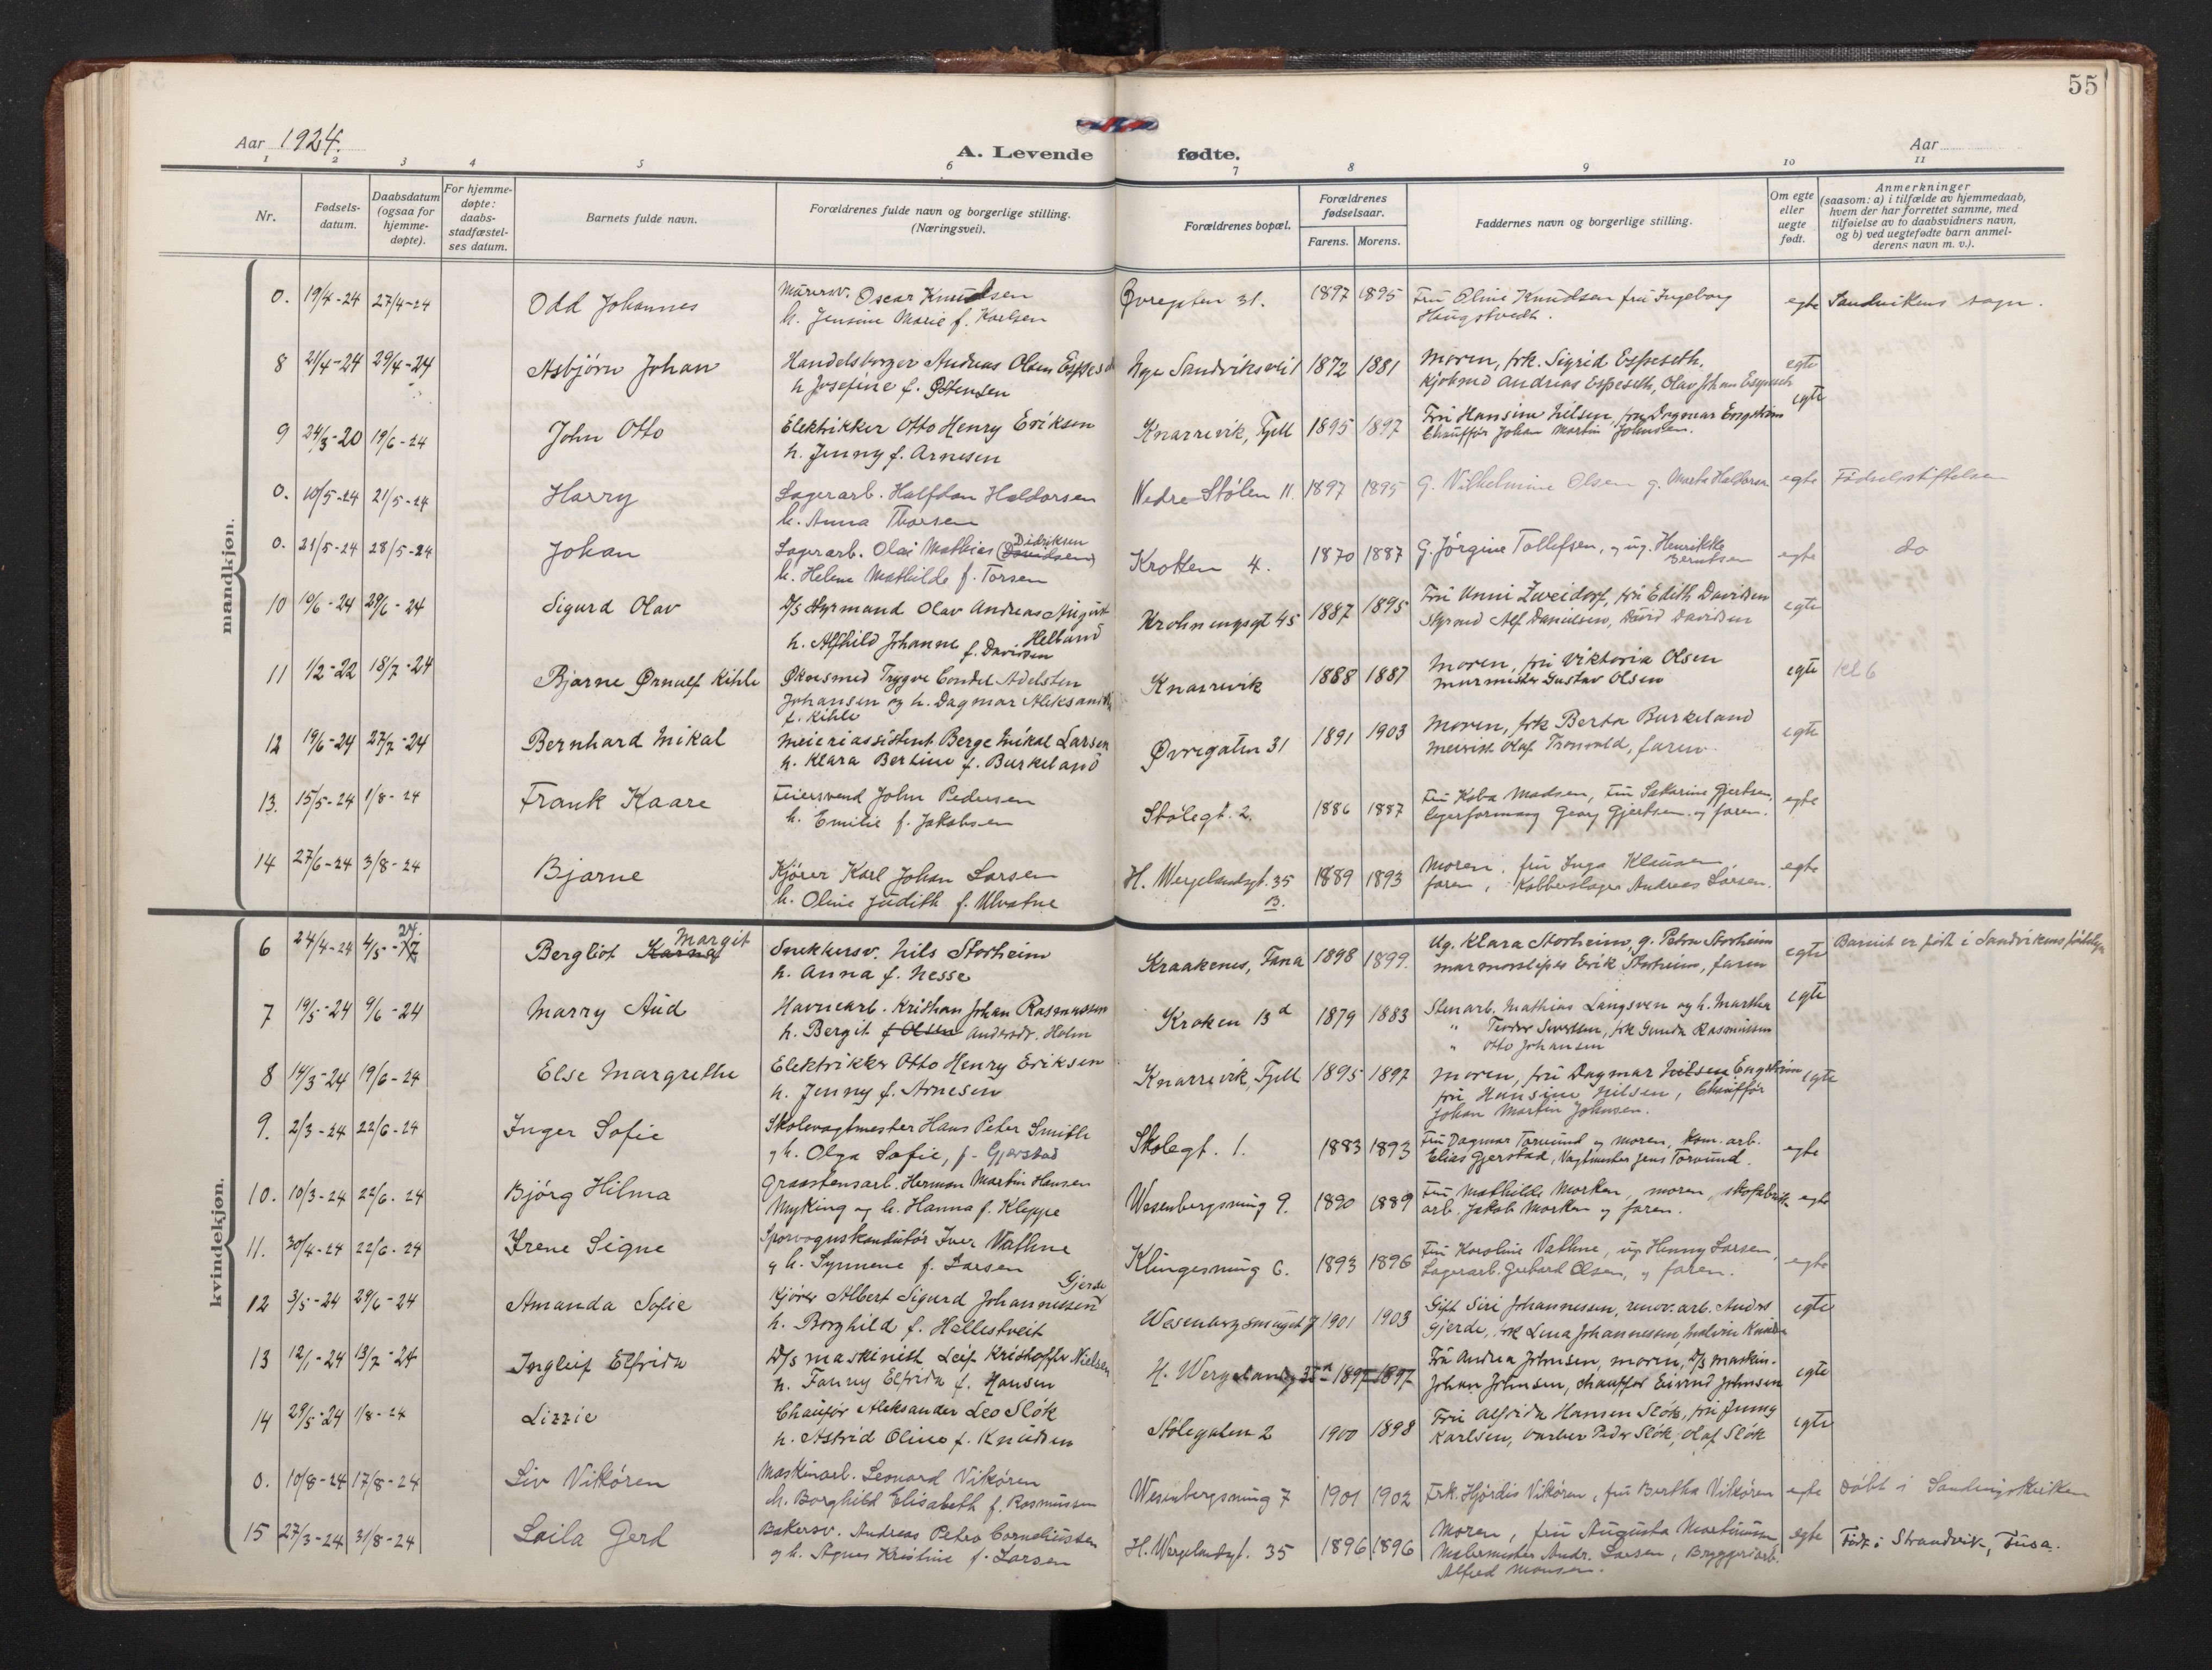 55
Aar 1924.
A. Levende fødte.
Aar
1 2 3 4 5 6 7 8 9 10 11
Nr.
Fødsels-
datum.
Daabsdatum
(ogsaa for
hjemme-
døpte).
For hjemme-
døpte:
daabs-
stadfæstel-
ses datum.
Barnets fulde navn.
Forældrenes fulde navn og borgerlige stilling.
(Næringsvei).
Forældrenes bopæl.
Forældrenes
fødselsaar.
Farens. Morens.
Faddernes navn og borgerlige stilling.
Om egte
eller
uegte
født.
Anmerkninger
(saasom: a) i tilfælde av hjemmedaab,
hvem der har forrettet samme, med
tilføielse av to daabsvidners navn,
og b) ved uegtefødte barn anmel-
derens navn m. v.).
mandkjøn.
0. 19/4-24 27/4-24 Odd Johannes Mürersv. Oscar Knudsen Øvregaten 31. 1897 1895 Frü Oline Knüdsen frü Ingeborg egte Sandvikens sogn.
h. Jensine Marie f. Karlsen Haugstvedt.
8 21/4-24 29/4-24 Asbjørn Johan Handelsborger Andreas Olsen Espeseth Nye Sandviksvei 1 1872 1881 Moren, frk. Sigrid Espeseth, egte
h Josefine f. Østensen Kjøbmd Andreas Espeseth, Olav Johan Espeseth
9 24/3-20 19/6-24 John Otto Elektrikker Otto Henry Eriksen Knarrevik, Fjell 1895 1897 Fru Hansine Nilsen, fru Dagmar Engstrøm egte
h. Jenny f. Arnesen Chauffør Johan Martin Johnsen.
0. 10/5-24 21/5-24 Harry Lagerarb. Halfdan Haldorsen Nedre Stølen 11. 1897 1895 G. Vilhelmine Olsen g. Marta Haldorsen egte Fødselsstiftelsen
h. Anna Thorsen
0. 21/5-24 28/5-24 Johan Lagerarb. Olai Mathias (Davidsen) Didriksen Krokken 4. 1870 1887 G. Jørgine Tollefsen, og ug. Henrikke Berntsen egte do
h. Helene Mathilde f. Torsen
10 10/6-24 29/6-24 Sigurd Olav D/S Styrmand Olav Andreas August Krohnengsgt 45 1887 1895 Fru Unni Zweidorf, fru Edith Davidsen egte
h. Alfhild Johanne f. Davidsen Helland Styrmd Alf Danielsen, David Davidsen
11 1/2-22 18/7-24 Bjarne Ørnulf Kihle Økonomd Trygve Condel Adelsten Knarrevik 1888 1887 Moren, fru Viktoria Olsen egte Kl 6
Johansen og h. Dagmar Aleksandra Murmester Gustav Olsen
f. Kihle
12 19/6-24 27/7-24 Bernhard Mikal Meieriassistent Berge Mikal Larsen Øvregaten 31 1891 1903 Moren, frk Berta Burkeland egte
h. Klara Bertine f. Burkeland Meierist Olaf Tronvold, faren
13. 15/5-24 1/8-24 Frank Kaare Feiersvend John Pedersen Stølegt. 2. 1886 1887 Frü Koba Madsen, Frü Sakarine Gjertsen, egte
h. Emilie f. Jakobsen lagerformann Georg Gjertsen og faren.
14 27/6-24 3/8-24 Bjarne Kjører Karl Johan Larsen H. Wergelandsgt. 35 B. 1889 1893 Moren, frü Inga Klausen, egte
h. Oline Judith f. Ulvatne faren, Kobberslager Andreas Larsen.
kvindekjøn.
6 24/4-24 4/5-24 Bergliot Karna Margit Snekkersv. Nils Storheim Kraakenes, Fana 1898 1899. Ug. Klara Storheim, g. Petra Storheim egte Barnet er født i Sandvikens fødselsstif
h. Anna f. Nesse marmorsliper Erik Storheim, faren
7 19/5-24 9/6-24 Marry Aud Havnearb. Kristian Johan Rasmussen Kroken 13 a 1879 1883 Stenarb. Mathias Langsven og h. Martha egte
h. Bergit f Olsen Andersdr. Holm " Teodor Sivertsen, frk Gunda Rasmussen
" Otto Johansen
8 14/3-24 19/6-24 Else Margrethe Elektrikker Otto Henry Eriksen Knarrevik, Fjell 1895 1897 Moren, fru Dagmar Nilsen Engstrøm egte
h. Jenny f. Arnesen fru Hansine Nilsen, Chauffør
Johan Martin Johnsen.
9. 2/3-24 22/6-24 Inger Sofie Skolevagtmester Hans Peter Smith Skolegt. 1. 1883 1893 Frü Dagmar Torvund og moren, Kom. arb. egte
og h. Olga Sofie, f. Gjerstad Elias Gjerstad, Vagtmester Jens Torvund.
10. 10/3-24 22/6-24 Bjørg Hilma Graastensarb. Herman Martin Hansen Wesenbergsmug 9. 1890 1889 Frü Mathilde Morken, moren, skofabrik egte
Myking og h. Hanna f. Kleppe arb. Jakob Morken og faren.
11. 30/4-24 22/6-24 Irene Signe Sporvognskonduktør Iver Vathne Klingesmug 6. 1893 1896 Frü Karoline Vathne, ug Henny Larsen, egte
og h. Synneve f. Larsen Lagerarb. Gerhard Olsen, og faren.
12 3/5-24 29/6-24 Amanda Sofie Kjører Albert Sigurd Johannessen Gjerde Wesenbergsmuget 7 1901 1903 Gift Siri Johannessen, renov. arb. Anders egte
h. Borghild f. Hellestveit Gjerde, frk Lena Johannessen, Malvin
13 12/1-24 13/7-24 Ingleif Elfrida D/S maskinist Leif Kristoffer Nielsen H. Wergelandsg 35 a 1897 1897 Fru Andrea Johnsen, moren, D/S maskin- egte
h. Fanny Elfrida f. Hansen Johan Johnsen, chauffør Eivind Johnsen
14 29/5-24 1/8-24 Lizzie Chauffør Aleksander Leo Sløk Stølegaten 2 1900 1898 Fru Alfrida Hansen Sløk, fru Jenny egte
h. Astrid Oline f. Knudsen Karlsen, Barber Peder Sløk, Olaf Sløk
0. 10/8-24 17/8-24 Liv Vikøren Maskinarb. Leonard Vikøren Wesenbergsmug 7 1901 1902 Frk. Hjørdis Vikøren, frü Bertha Vikøren egte Døbt i Sandvigskirken
h. Borghild Elisabeth f. Rasmussen
15 27/3-24 31/8-24 Laila Gerd Bakersv. Andreas Petro Corneliussen H. Wergelandsgt. 35 1896 1896 Moren, frü Augusta Martinussen egte Født i Strandvik, Fusa.
og h. Agnes Kristine f. Larsen Malermester Andr. Larsen, Bryggeriarb.
Alfred Monsen.